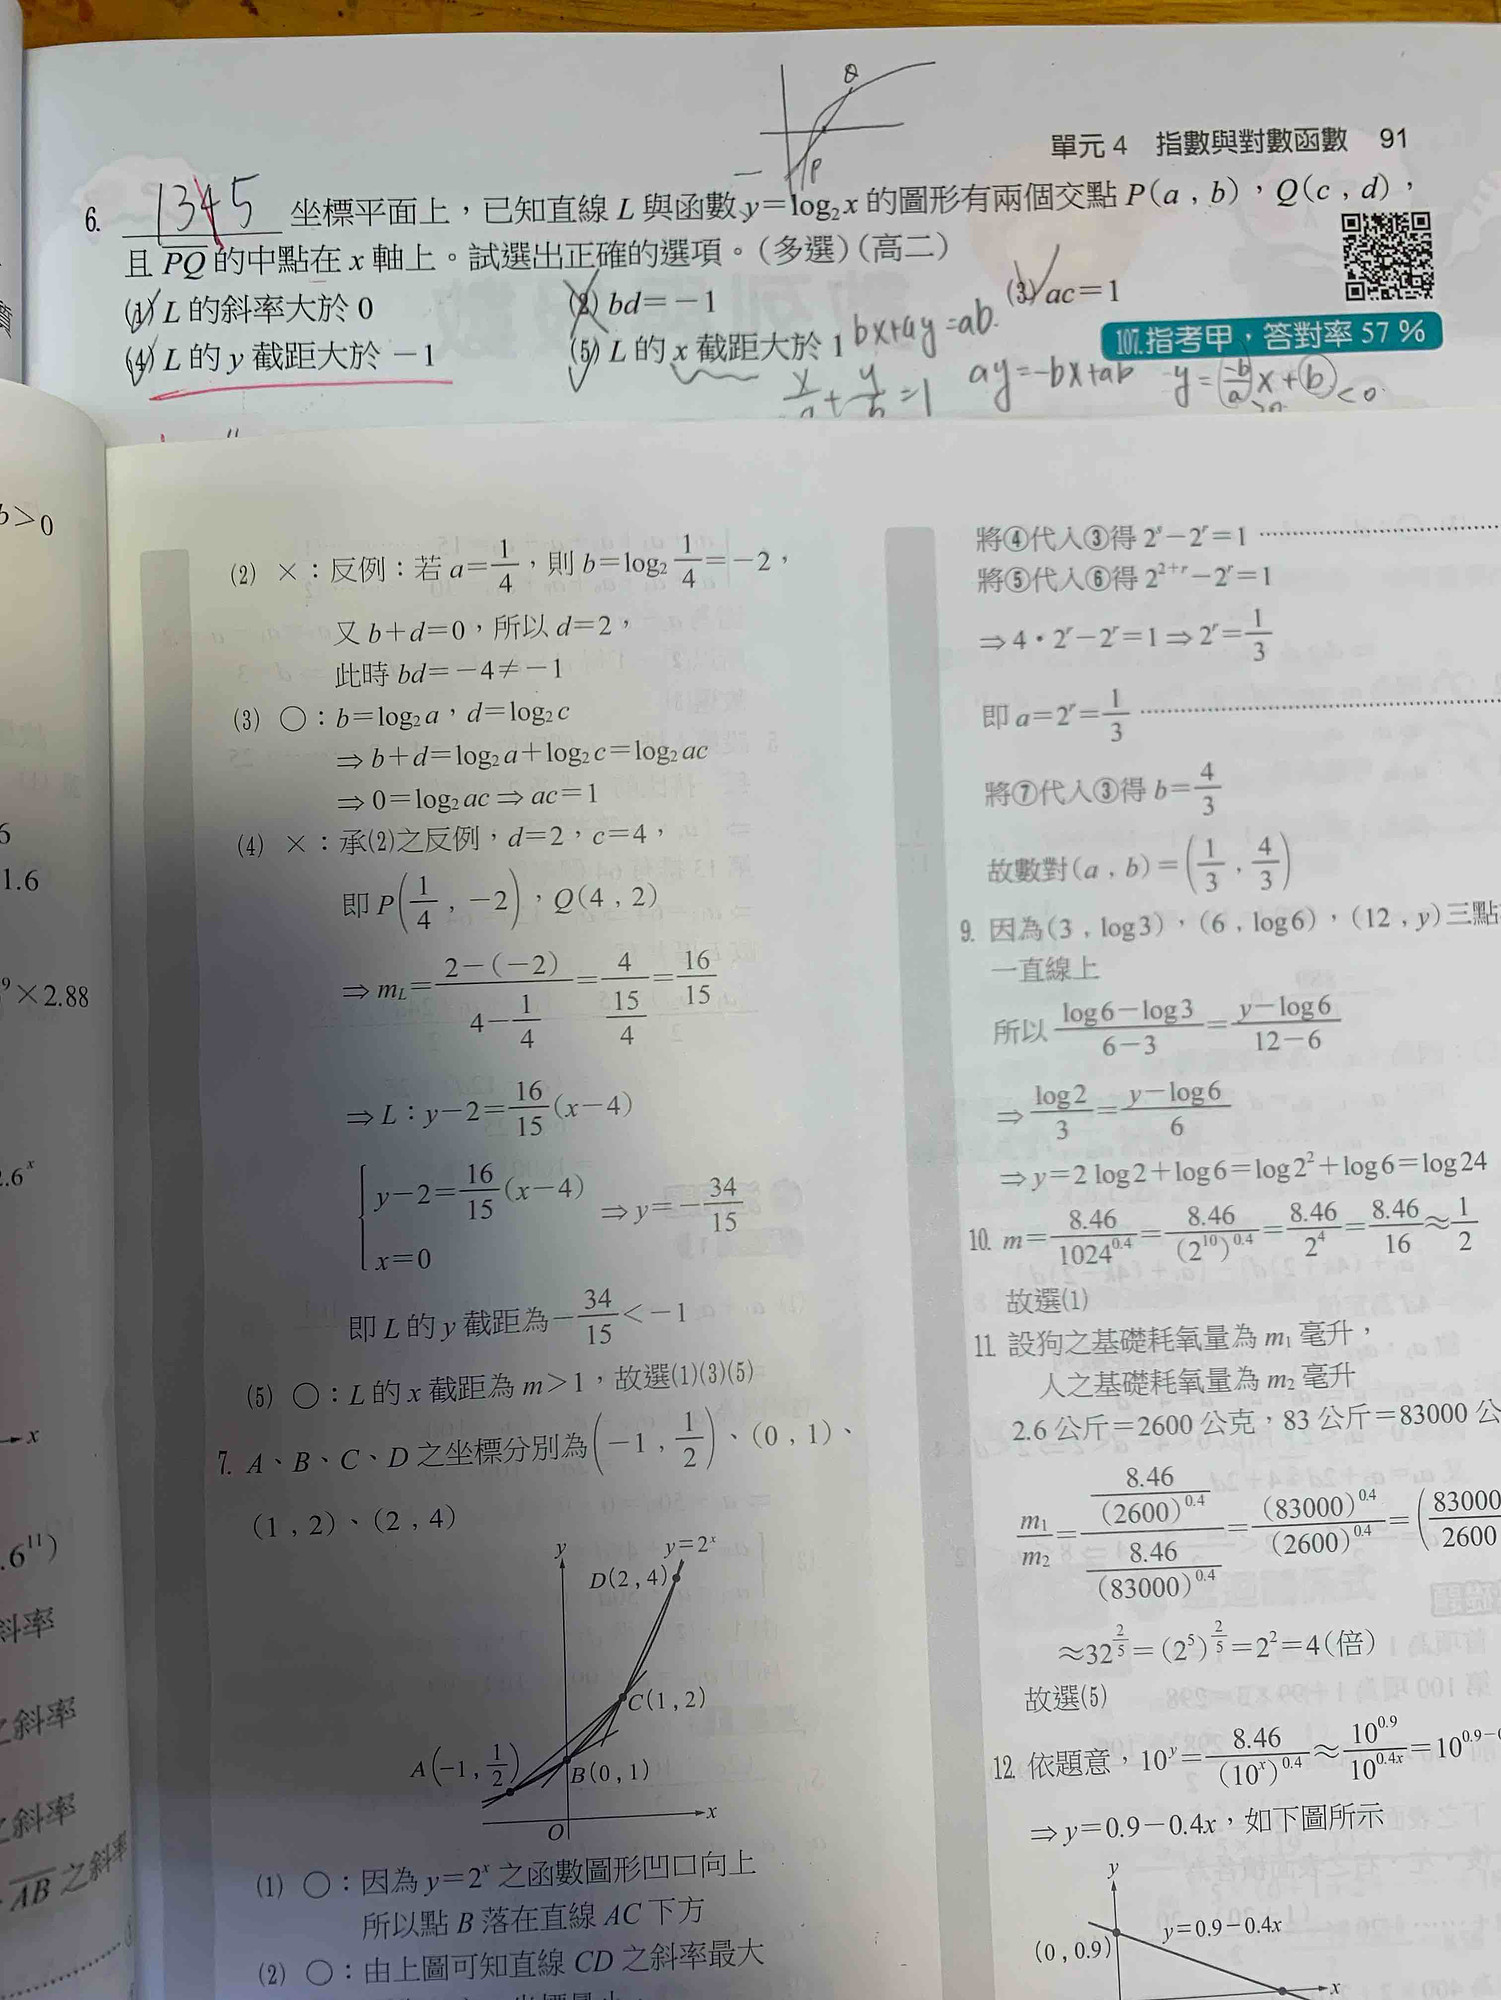 Q
P
單元 4 指數與對數函數 91
6. 1345 坐標平面上，已知直線 L 與函數 y=log₂x 的圖形有兩個交點 P(a , b)，Q(c , d)，
且 PQ 的中點在 x 軸上。試選出正確的選項。(多選)(高二)
(1) L 的斜率大於 0 (2) bd=－1 (3) ac=1
(4) L 的 y 截距大於 －1 (5) L 的 x 截距大於 1
bx+ay=ab.
107.指考甲，答對率 57 %
x/a + y/b =1 ay=-bx+ab y=(-b/a)x+b <0
b>0
(2) ×：反例：若 a=1/4，則 b=log₂ 1/4=－2，
又 b+d=0，所以 d=2，
此時 bd=－4≠－1
(3) ○：b=log₂a，d=log₂c
⇒b+d=log₂a+log₂c=log₂ac
⇒0=log₂ac⇒ac=1
(4) ×：承(2)之反例，d=2，c=4，
即 P(1/4 , －2)，Q(4 , 2)
⇒m_L=(2－(－2))/(4－1/4)=4/(15/4)=16/15
⇒L：y－2=16/15(x－4)
{y－2=16/15(x－4)
x=0 ⇒y=－34/15
即 L 的 y 截距為－34/15＜－1
(5) ○：L 的 x 截距為 m>1，故選(1)(3)(5)
7. A、B、C、D 之坐標分別為(－1 , 1/2)、(0 , 1)、
(1 , 2)、(2 , 4)
y y=2ˣ
D(2 , 4)
C(1 , 2)
A(－1 , 1/2)
B(0 , 1)
x
O
(1) ○：因為 y=2ˣ 之函數圖形凹口向上
所以點 B 落在直線 AC 下方
(2) ○：由上圖可知直線 CD 之斜率最大
將④代入③得 2ˢ－2ʳ=1
將⑤代入⑥得 2²⁺ʳ－2ʳ=1
⇒4・2ʳ－2ʳ=1⇒2ʳ=1/3
即 a=2ʳ=1/3
將⑦代入③得 b=4/3
故數對(a , b)=(1/3 , 4/3)
9. 因為(3 , log3)，(6 , log6)，(12 , y)三點
一直線上
所以 (log6－log3)/(6－3)=(y－log6)/(12－6)
⇒log2/3=(y－log6)/6
⇒y=2 log2＋log6=log2²＋log6=log24
10. m=8.46/1024^0.4=8.46/(2¹⁰)^0.4=8.46/2⁴=8.46/16≈1/2
故選(1)
11. 設狗之基礎耗氧量為 m₁ 毫升，
人之基礎耗氧量為 m₂ 毫升
2.6 公斤=2600 公克，83 公斤=83000 公
m₁/m₂=(8.46/(2600)^0.4)/(8.46/(83000)^0.4)=(83000)^0.4/(2600)^0.4=(83000/2600
≈32^(2/5)=(2⁵)^(2/5)=2²=4(倍)
故選(5)
12. 依題意，10ʸ=8.46/(10ˣ)^0.4≈10^0.9/10^0.4x=10^0.9-
⇒y=0.9－0.4x，如下圖所示
y
y=0.9－0.4x
(0 , 0.9)
x
1.6
⁹×2.88
2.6ˣ
x
.6¹¹)
斜率
之斜率
之斜率
AB 之斜率